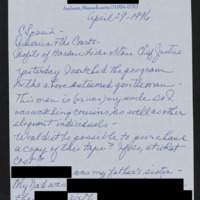 Amherst, Massachusetts 01004-0783
April 29-1996
CSpan 2 -
America & the Courts -
Profile of Harlan Fiske Stone, Chief Justice
Yesterday I watched the program
on the above esteemed gentleman.
This man is (or was) my uncle. So I
was watching cousins, as well as other
eloquent individuals -
Would it be possible to purchase
a copy of this tape? If yes, at what
cost?
was my father's sister -
My Dad was